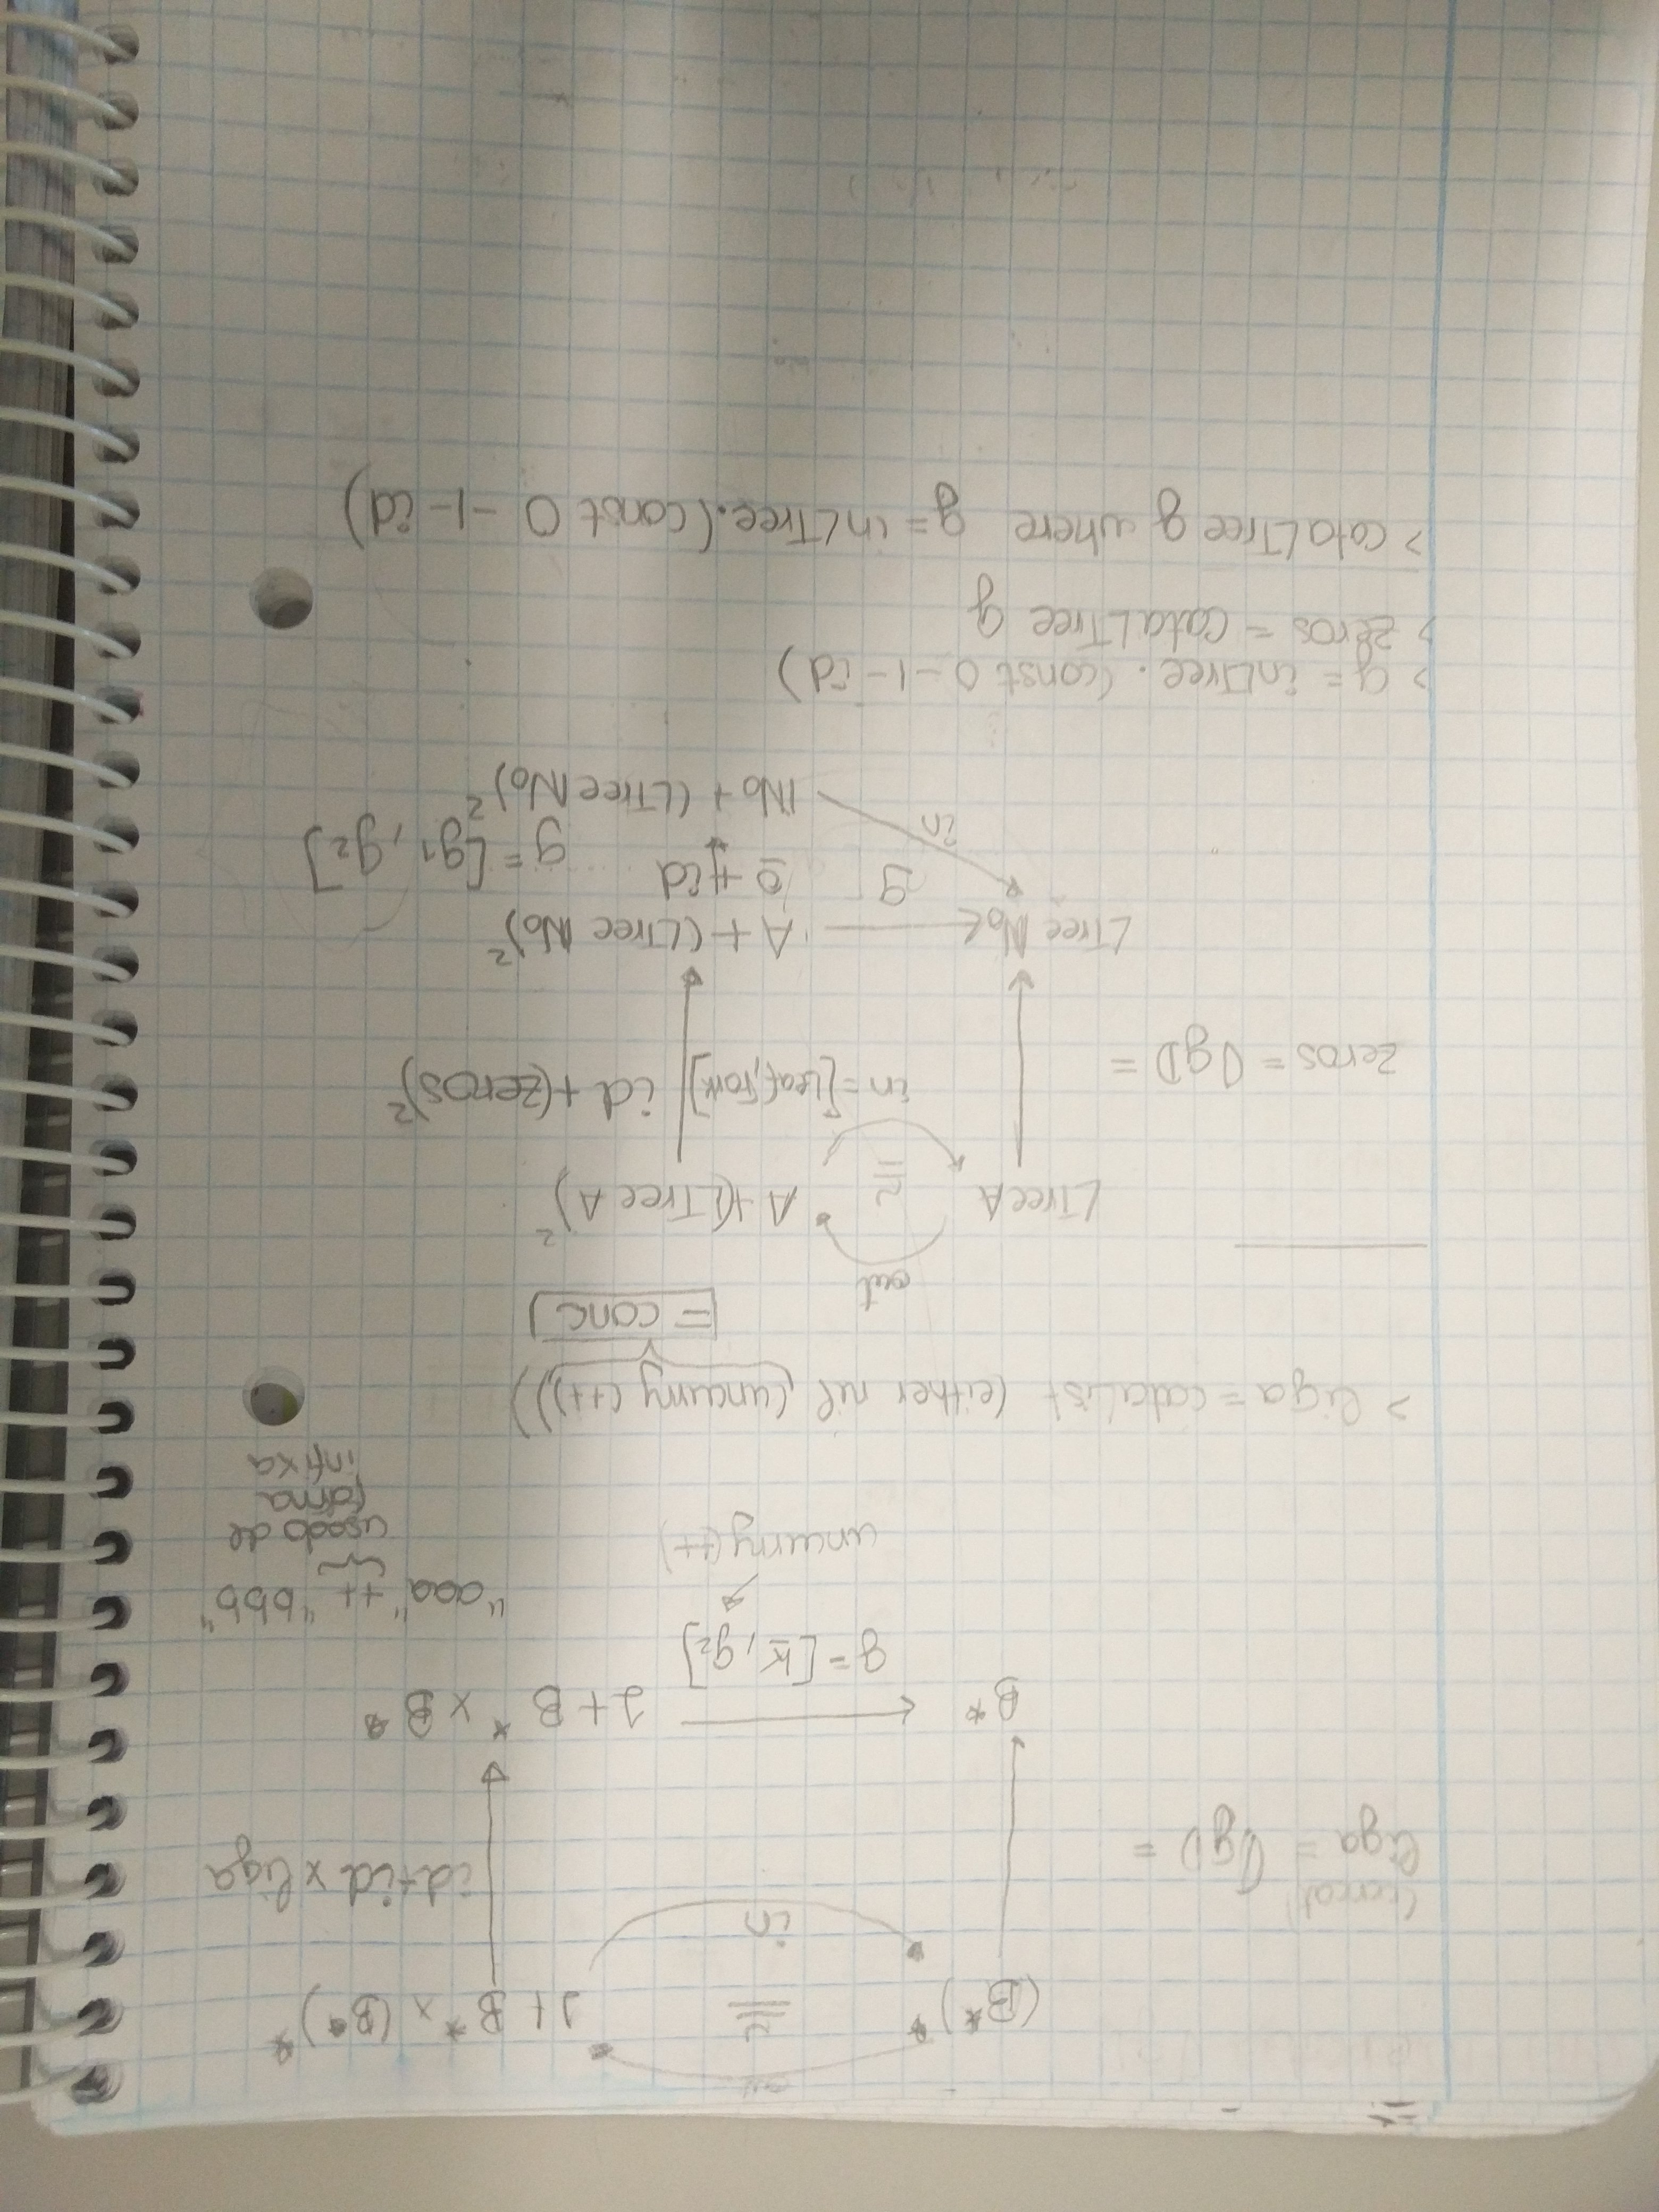 out
(B*)* ≅ 1 + B* × (B*)*
in
liga = ⦇g⦈ =
id + id × liga
B* ← 1 + B* × B*
g = [k, g₂]
uncurry (++)
"aaa" ++ "bbb"
usado de
forma
infixa
> liga = cataList (either nil (uncurry (++)))
= conc
out
LTree A ≅ A + (LTree A)²
in = [Leaf, Fork]
id + (zeros)²
zeros = ⦇g⦈ =
LTree ℕ₀ ← A + (LTree ℕ₀)²
g
0 + id
g = [g₁, g₂]
in
ℕ₀ + (LTree ℕ₀)²
> g = inLTree . (const 0 -|- id)
> zeros = cataLTree g
> cataLTree g where g = inLTree . (const 0 -|- id)